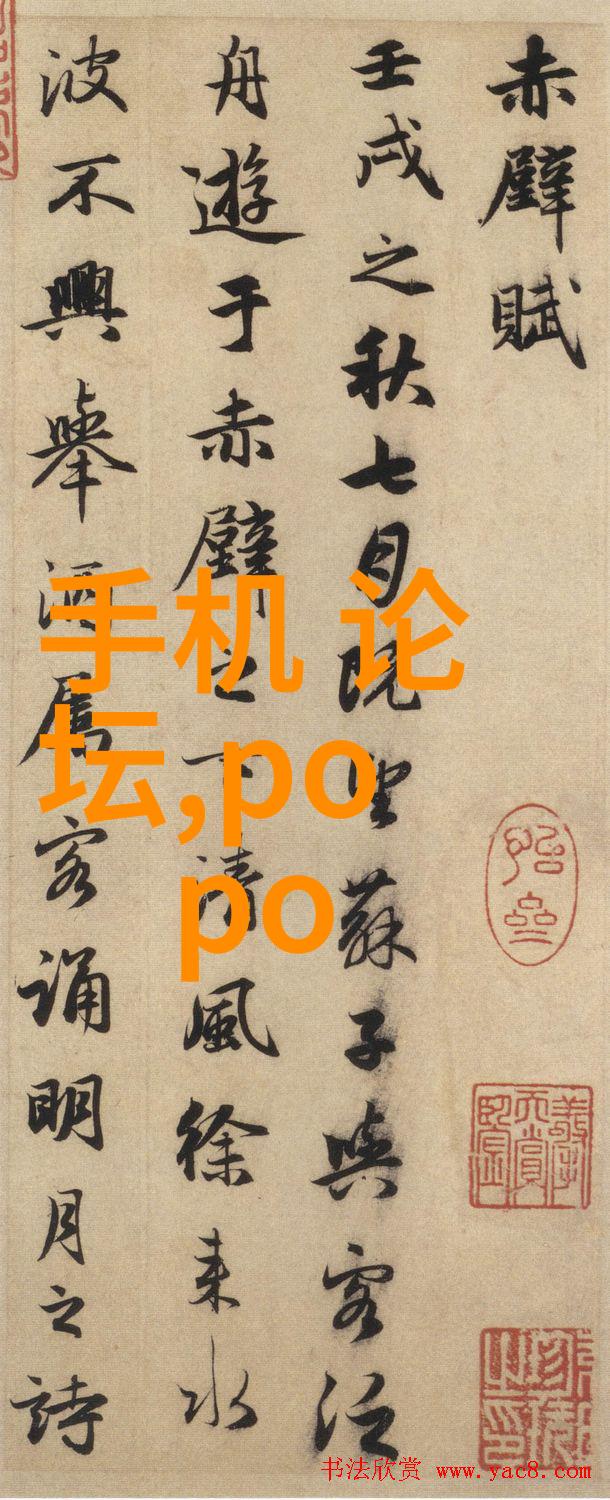 赤壁賦
壬戌之秋七月既望蘇子與客泛
舟遊于赤壁之下清風徐来水
波不興舉酒屬客誦明月之詩
手机 论
坛,po
po
书法欣赏 www.yac8.com